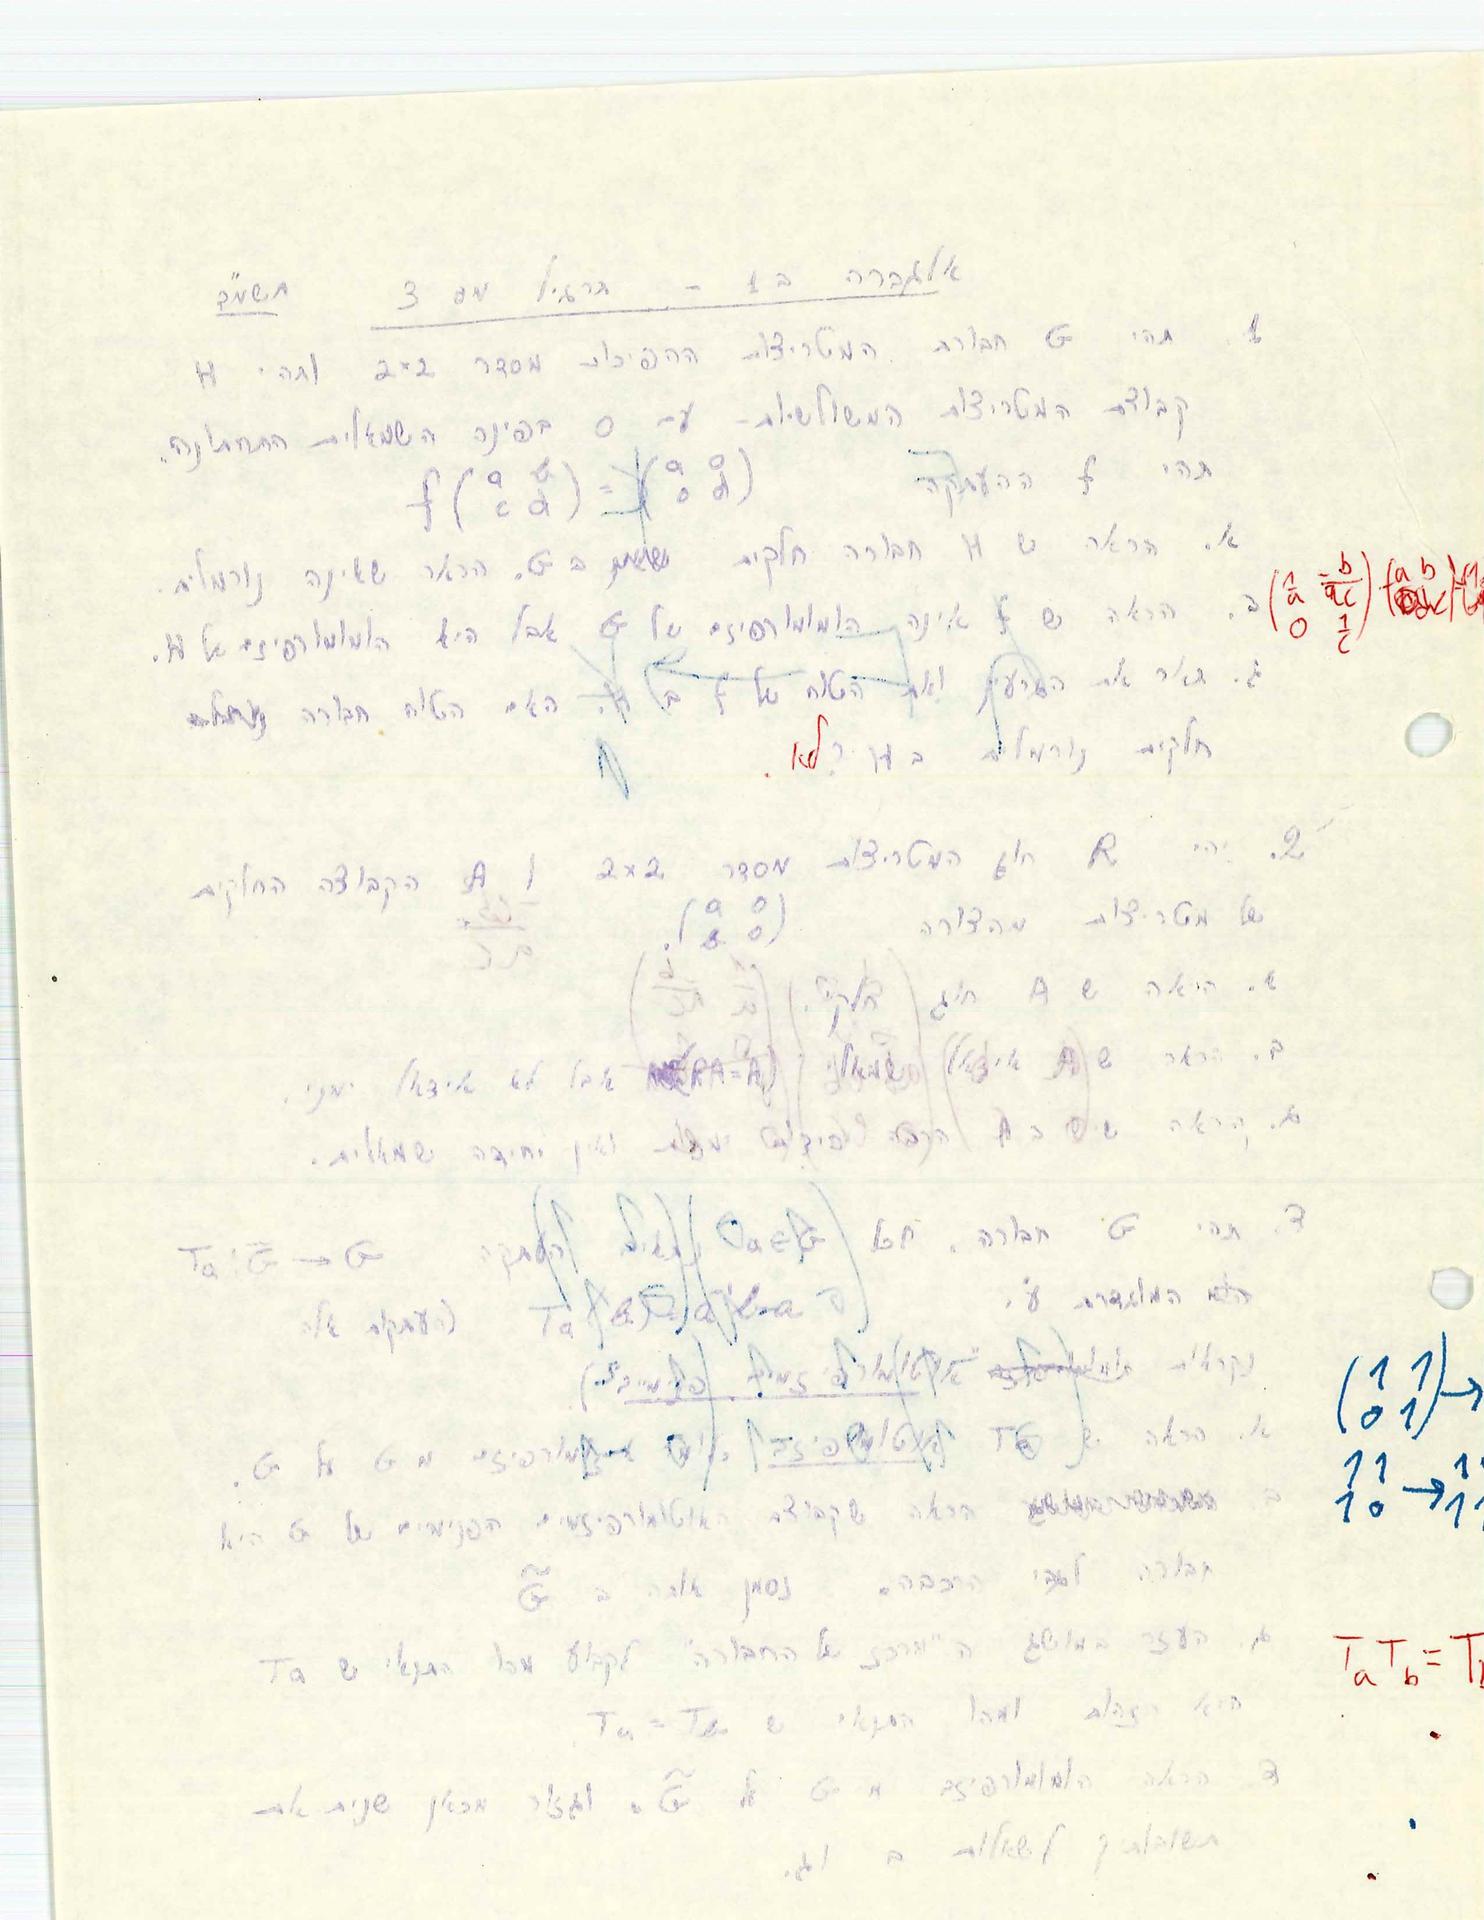 אלגברה ב 1 - תרגיל מס 3 תשמ"ב
1. תהי G חבורת המטריצות ההפיכות מסדר 2×2 ותהי H
קבוצת המטריצות המשולשיות - עם 0 בפינה השמאלית התחתונה.
תהי f ההעתקה f(a b c d) = (a 0 0 d)
א. הראה ש H חבורה חלקית ב G. הראה שאינה נורמלית.
ב. הראה ש f אינה הומומורפיזם של G אבל היא הומומורפיזם של H.
ג. תאר את הגרעין ואת הטווח של f ב H. האם הטווח חבורה
חלקית נורמלית ב H? לא.
2. יהי R חוג המטריצות מסדר 2×2 ו A הקבוצה החלקית
של מטריצות מהצורה (a 0 b 0).
א. הראה ש A חוג חלקי.
ב. הראה ש A אידאל שמאלי (RA=A) אבל לא אידאל ימני.
ג. הראה שיש ב A הרבה יחידות ימניות ואין יחידה שמאלית.
3. תהי G חבורה. לכל a∈G נתאים העתקה Ta: G → G
המוגדרת ע"י (העתקות אלה
נקראות "אוטומורפיזמים פנימיים")
א. הראה ש Ta אוטומורפיזם, איזומורפיזם מ G על G.
ב. הראה שקבוצת האוטומורפיזמים הפנימיים של G היא
חבורה לגבי הרכבה. נסמן אותה ב G̃
ג. העזר במושג ה"מרכז של החבורה" לקבוע מהו התנאי ש Ta
היא הזהות ומהו התנאי ש Ta = Tb
ד. הראה הומומורפיזם מ G על G̃. וגזור מכאן שנית את
תשובותיך לשאלות ב וג.
(1 1 0 1) →
1 1 1 0 →
TaTb = T